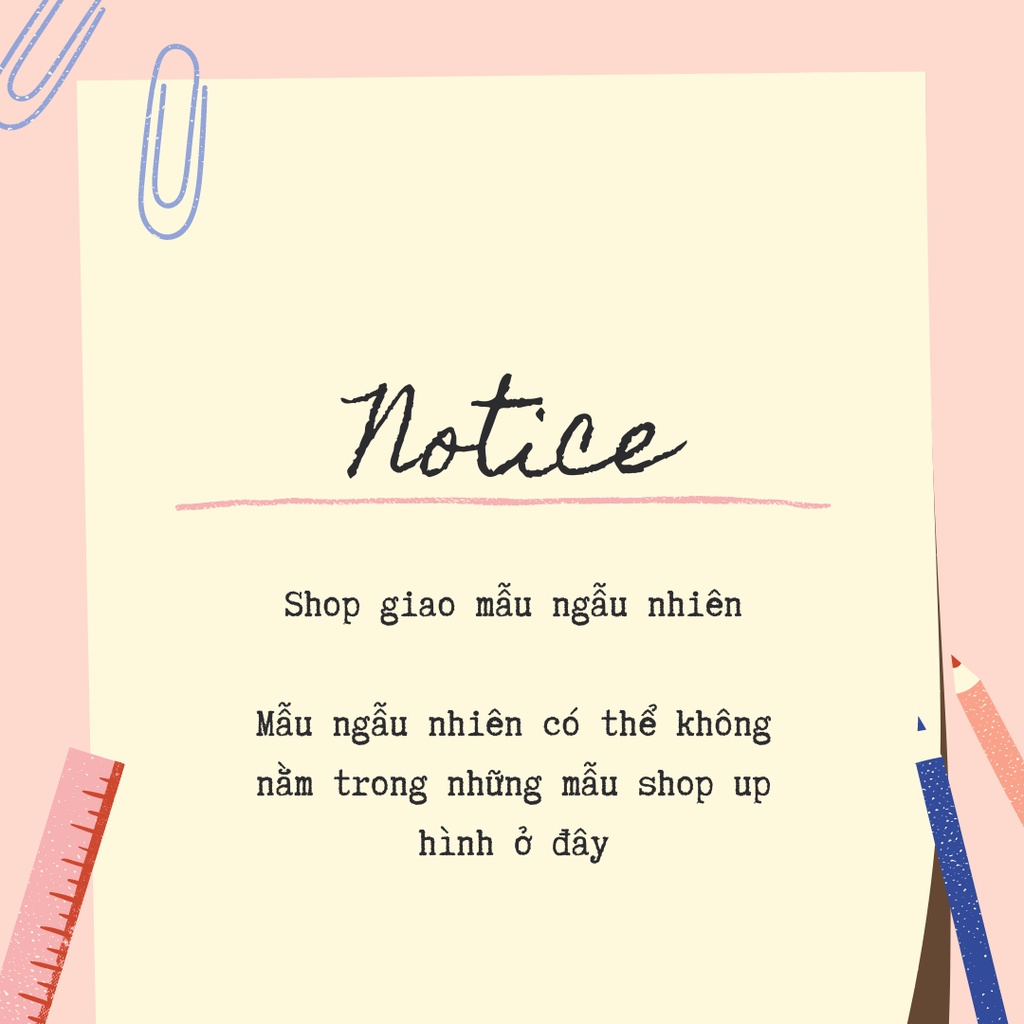 Notice
Shop giao mẫu ngẫu nhiên
Mẫu ngẫu nhiên có thể không
nằm trong những mẫu shop up
hình ở đây